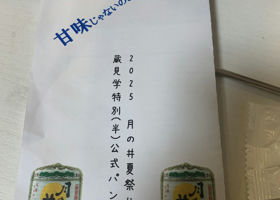 甘味じゃないの
2025 月の井夏祭り
蔵見学特別(半)公式パン
月
月